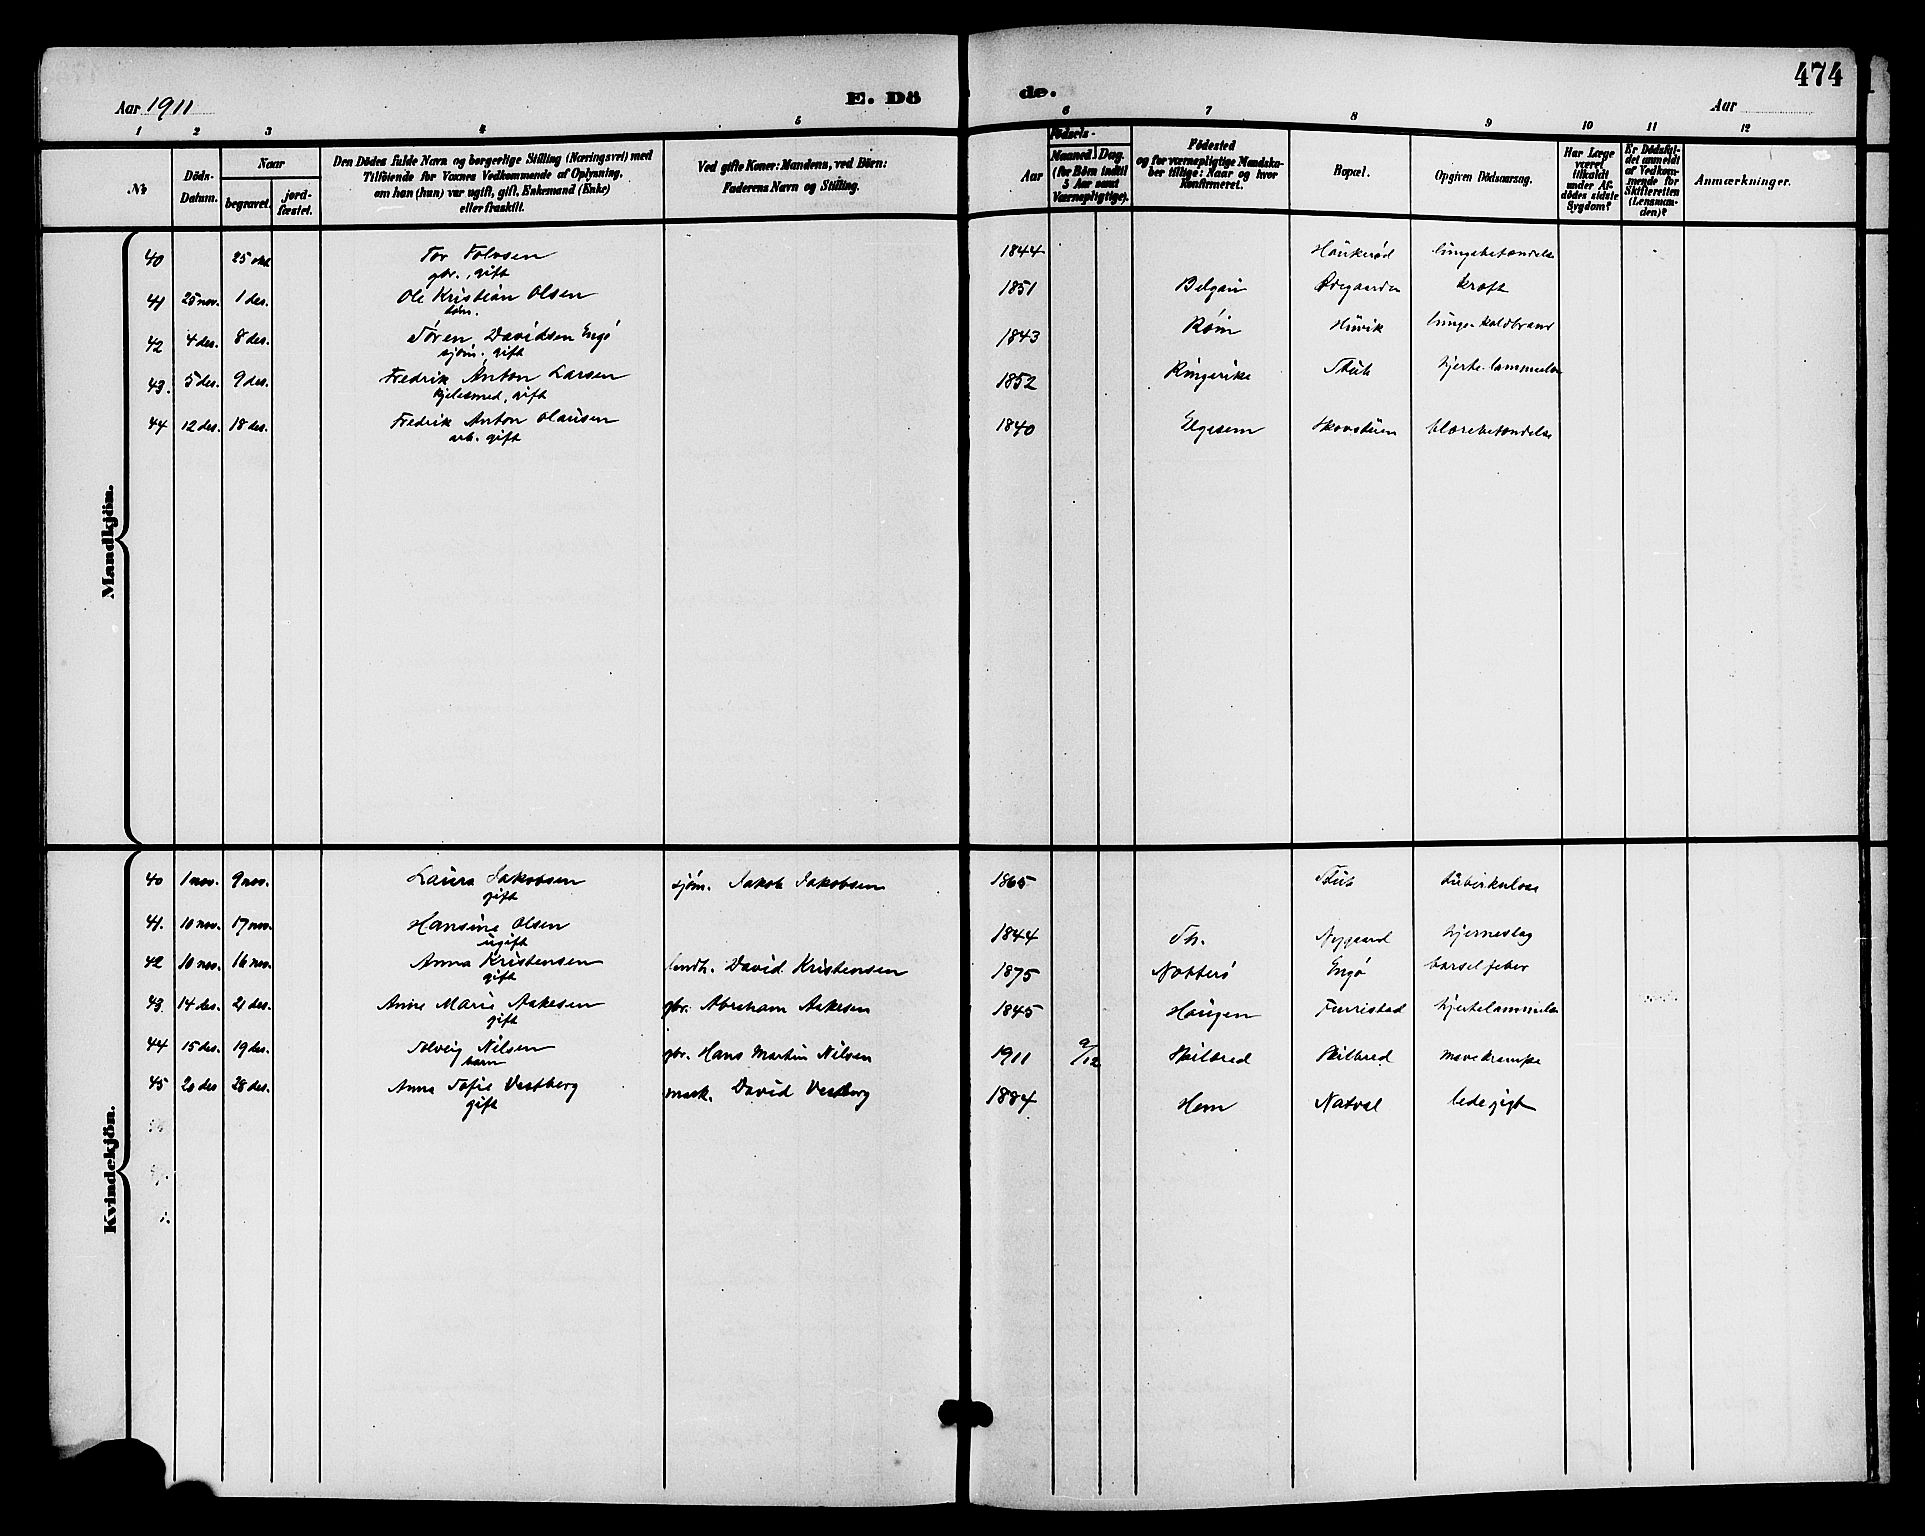 474
Aar 1911
E. Dö de.
Aar
1 2 3 4 5 6 7 8 9 10 11 12
No
Döds-Datum.
Naar
begravet.
jord-fæstet.
Den Dödes fulde Navn og borgerlige Stilling (Næringsvei) med
Tilföiende for Voxnes Vedkommende af Oplysning,
om han (hun) var ugift, gift, Enkemand (Enke)
eller fraskilt.
Ved gifte Koner: Mandens, ved Börn:
Faderens Navn og Stilling.
Födsels-
Aar
Maaned. Dag.
(for Börn indtil
5 Aar samt
Værnepligtige).
Födested
og for værnepligtige Mandska-
ber tillige: Naar og hvor
Konfirmeret.
Bopæl.
Opgiven Dödsaarsag.
Har Læge
været
tilkaldt
under Af-
dödes sidste
Sygdom?
Er Dödsfal-
det anmeldt
af Vedkom-
mende for
Skifteretten
(Lensman-
den)?
Anmærkninger.
Mandkjön.
40 25 okt. Tor Tolvsen 1844 Haukerød lungebetændelse
gbr., gift
41 25 nov. 1 des. Ole Kristian Olsen 1851 Ødegaarden kræft
42 4 des. 8 des. Søren Davidsen Engø 1843 lunge-koldbrand
sjøm., gift
43. 5 des. 9 des. Fredrik Anton Larsen 1852 Ringerike Stub hjerte-lammelse
kjelesmed, gift
44 12 des. 18 des. Fredrik Anton Olausen 1840 Elgesem blærebetændelse
arb. gift
Kvindekjön.
40 1 nov. 9 nov. Laura Jakobsen sjøm. Jakob Jakobsen 1865 Stub tuberkulose
gift
41. 10 nov. 17 nov. Hansine Olsen 1844 Sth. Nygaard hjerneslag
ugift
42 10 nov. 16 nov. Anna Kristensen David Kristensen 1875 Nøtterø Engø barselfeber
gift
43. 14 des. 21 des. Anne Marie Aakesen gbr. Abraham Aakesen 1845 Haugen Furustad hjertelammelse
gift
44 15 des. 19 des. Solveig Nilsen gbr. Hans Martin Nilsen 1911 9/12 Skilbred Skilbred mavekrampe
barn
45 20 des 28 des. Anna Sofie Vestberg mask. David Vestberg 1884 Hem Natval ledegigt
gift